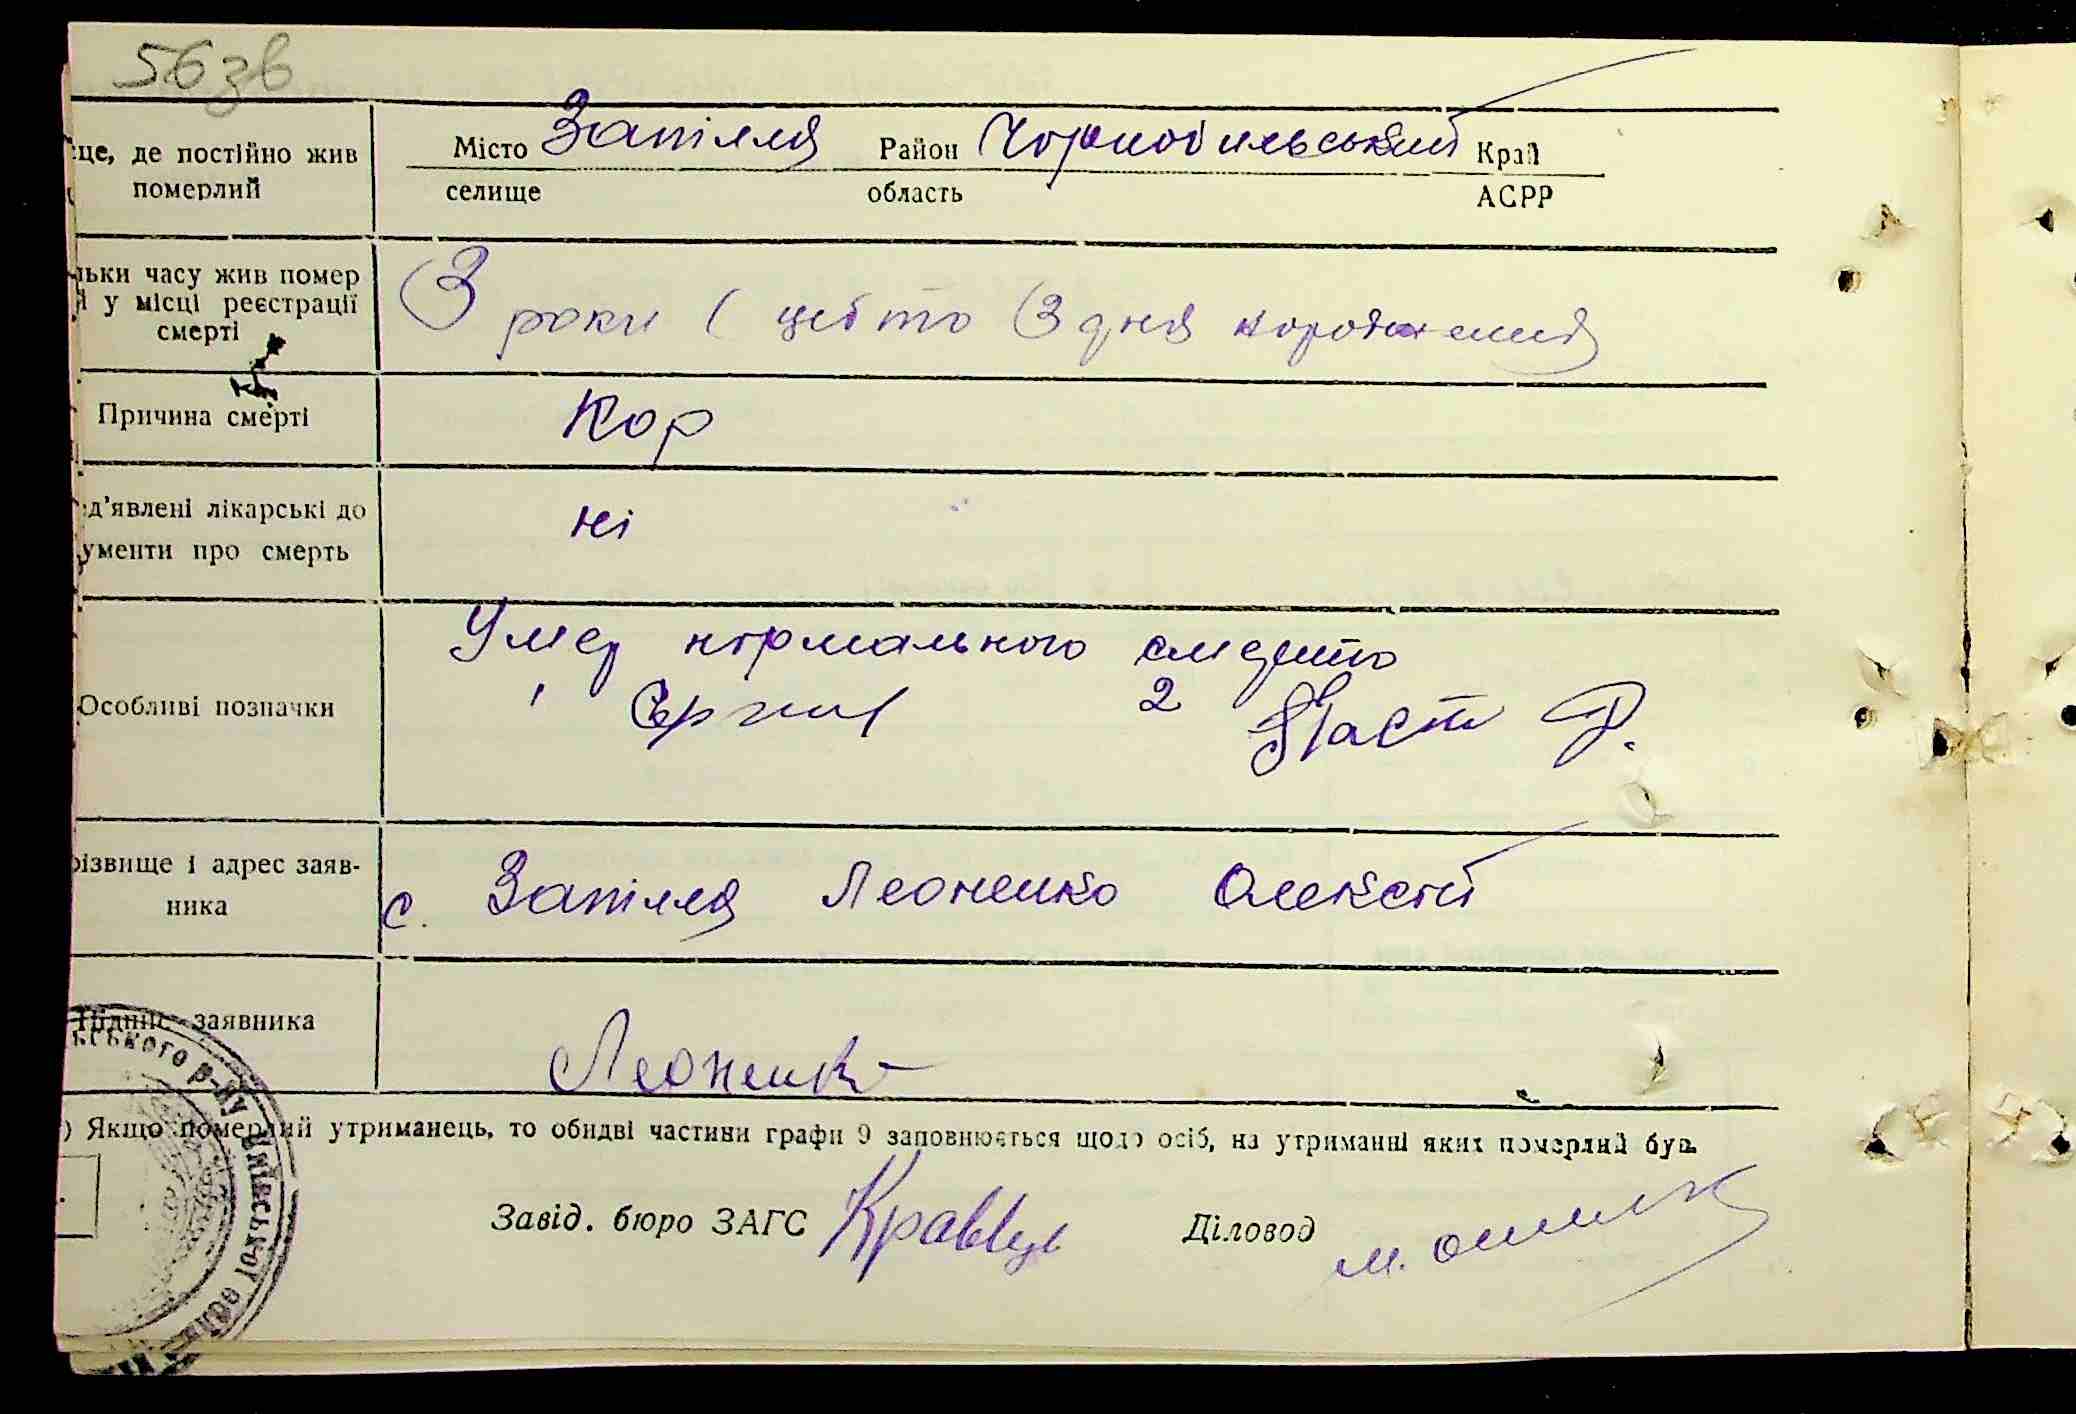 56зв
це, де постійно жив
померлий
Місто Запілля Район Чорнобильський Край
селище область АСРР
льки часу жив помер
й у місці реєстрації
смерті
3 роки ( цебто 3 дня народження
Причина смерті
Кор
д'явлені лікарські до
ументи про смерть
ні
Умер нормального смерто
Особливі позначки
1 2
різвище і адрес заяв-
ника
с. Запілля Леоненко Олексій
Підпис заявника
Леоненко
) Якщо померлий утриманець, то обидві частини графи 9 заповнюється щодо осіб, на утриманні яких померлий був.
Завід. бюро ЗАГС Кравець Діловод М.
ського р-ну Київської обл